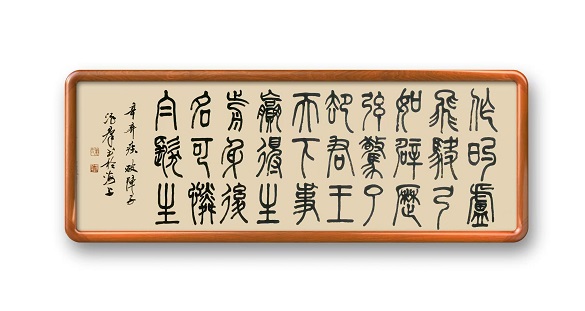 作的盧
飛駃弓
如辟歷
弦驚了
却君王
天下事
贏得生
前身後
名可憐
白髮生
辛弃疾破陣子
書於海上